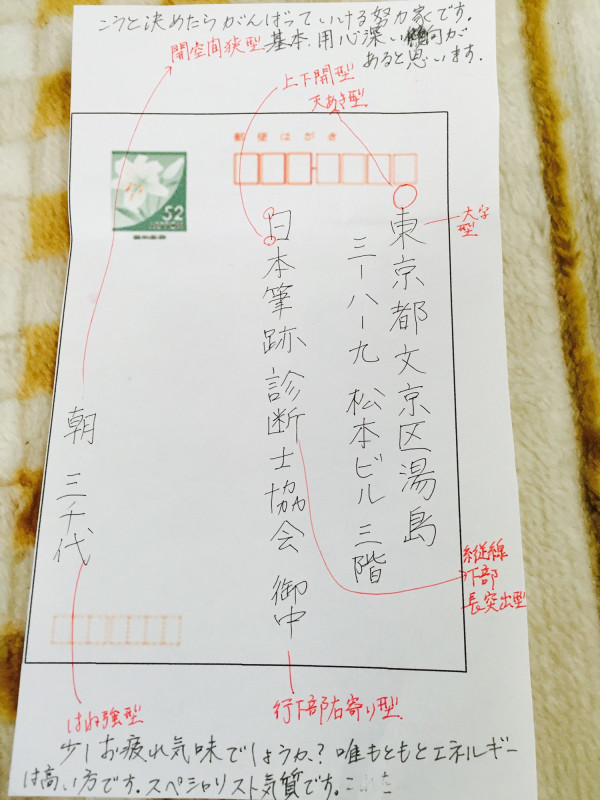 こうと決めたらがんばっていける努力家です。
基本、用心深い傾向が
あると思います。
開空間狭型
上下開型
天あき型
郵便はがき
52
大字
型
東京都文京区湯島
三ー八ー九 松本ビル三階
日本筆跡診断士協会 御中
朝 三千代
縦線
下部
長突出型
はね強型
行下部右寄り型
少しお疲れ気味でしょうか？唯もともとエネルギー
は高い方です。スペシャリスト気質です。